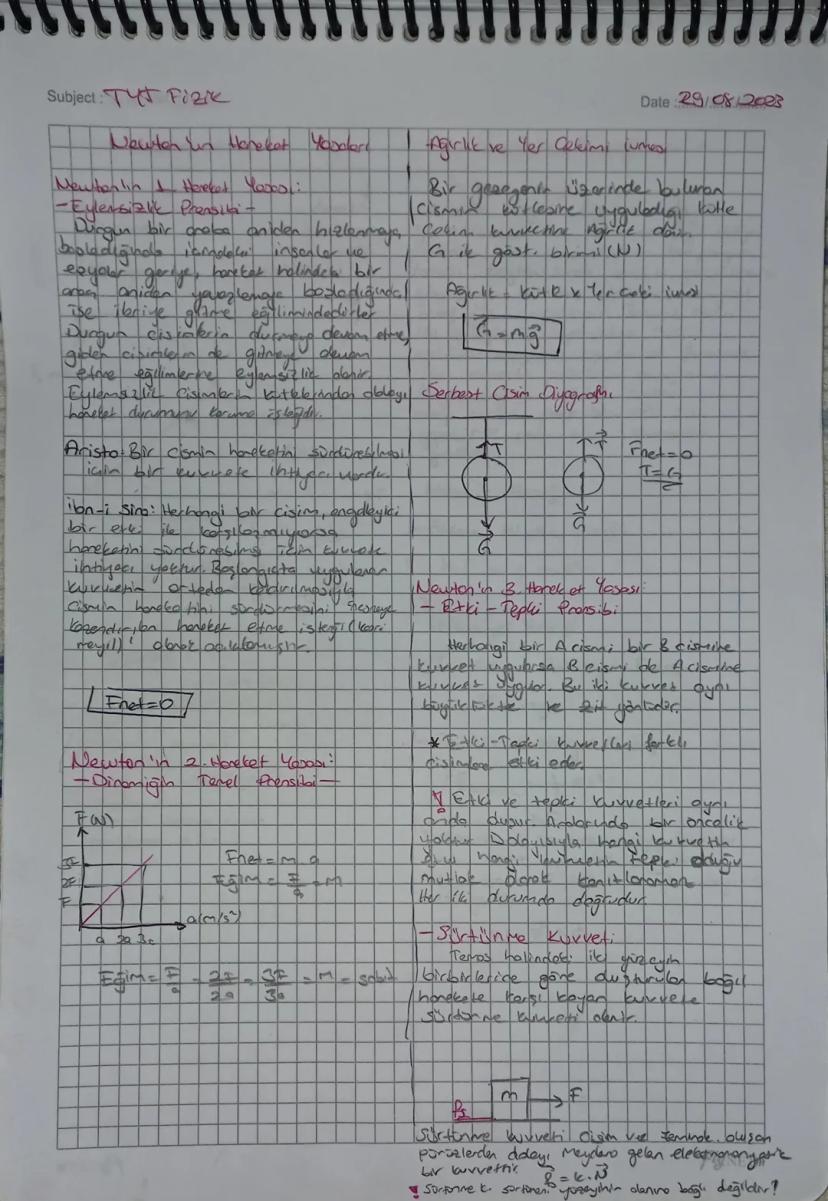 Subject: TYT Fizik
Date: 29/08/2023
Newton'un Hareket Yasaları
Newton'ın 1. Hareket Yasası:
- Eylemsizlik Prensibi -
Durgun bir araba aniden hızlanmaya
başladığında içindeki insanlar ve
eşyalar geriye, hareket halindeki bir
araç aniden yavaşlamaya başladığında
ise ileriye gitme eğilimindedirler
Durgun cisimlerin durmaya devam etme,
giden cisimlerin de gitmeye devam
etme eğilimlerine eylemsizlik denir.
Eylemsizlik cisimlerin kütlelerinden dolayı
hareket durumunu koruma isteğidir.
Aristo: Bir cismin hareketini sürdürebilmesi
için bir kuvvete ihtiyacı vardır
İbn-i Sina: Herhangi bir cisim, engelleyici
bir etki ile karşılaşmıyorsa
hareketini sürdürebilmesi için kuvvete
ihtiyacı yoktur. Başlangıçta uygulanan
kuvvetin ortadan kaldırılmasıyla
cismin hareketini sürdürmesini
kazandırılan hareket etme isteği (kasri
meyil)' olarak açıklamıştır.
Fnet=0
Newton'ın 2. Hareket Yasası:
- Dinamiğin Temel Prensibi -
F(N)
3F
2F
F
a 2a 3a
a(m/s²)
Fnet = m.a
Eğim = F/a = m
Eğim = F/a = 2F/2a = 3F/3a = m = sabit
Ağırlık ve Yer Çekimi İvmesi
Bir gezegenin üzerinde bulunan
cismin kütlesine uyguladığı kütle
çekim kuvvetine ağırlık denir.
G ile göst. birimi (N)
Ağırlık = kütle x Yer çeki ivmesi
G = mg
Serbest Cisim Diyagramı
T
G
T
G
Fnet=0
T=G
Newton'ın 3. Hareket Yasası:
- Etki - Tepki Prensibi
Herhangi bir A cismi bir B cismine
kuvvet uygularsa B cismi de A cismine
kuvvet uygular. Bu iki kuvvet aynı
büyüklükte ve zıt yönlüdür.
* Etki-Tepki kuvvetleri farklı
cisimlere etki eder.
! Etki ve tepki kuvvetleri aynı
anda oluşur. Aralarında bir öncelik
yoktur Dolayısıyla hangi kuvvetin
etki hangi kuvvetin tepki olduğu
mutlak olarak kanıtlanamaz
Her iki durumda doğrudur
- Sürtünme Kuvveti:
Temas halindeki iki yüzeyin
birbirlerine göre oluşturulan bağıl
harekete karşı koyan kuvvete
sürtünme kuvveti denir.
m
F
fs
Sürtünme kuvveti cisim ve zeminde oluşan
pürüzlerden dolayı meydana gelen elektromanyetik
bir kuvvettir
fs = k.N
! Sürtünme k. sürtünen yüzeyinin alanına bağlı değildir!